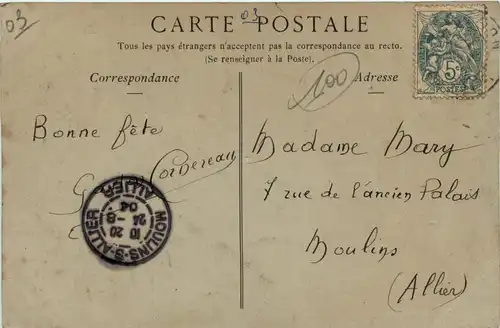 03
03
CARTE POSTALE
Tous les pays étrangers n'acceptent pas la correspondance au recto.
(Se renseigner à la Poste).
Correspondance
Adresse
100
5c
POSTES
Bonne fête
G. Corbereau
MOULINS-S-ALLIER
10 20
24 -8
04
ALLIER
Madame Mary
7 rue de l'ancien Palais
Moulins
(Allier)